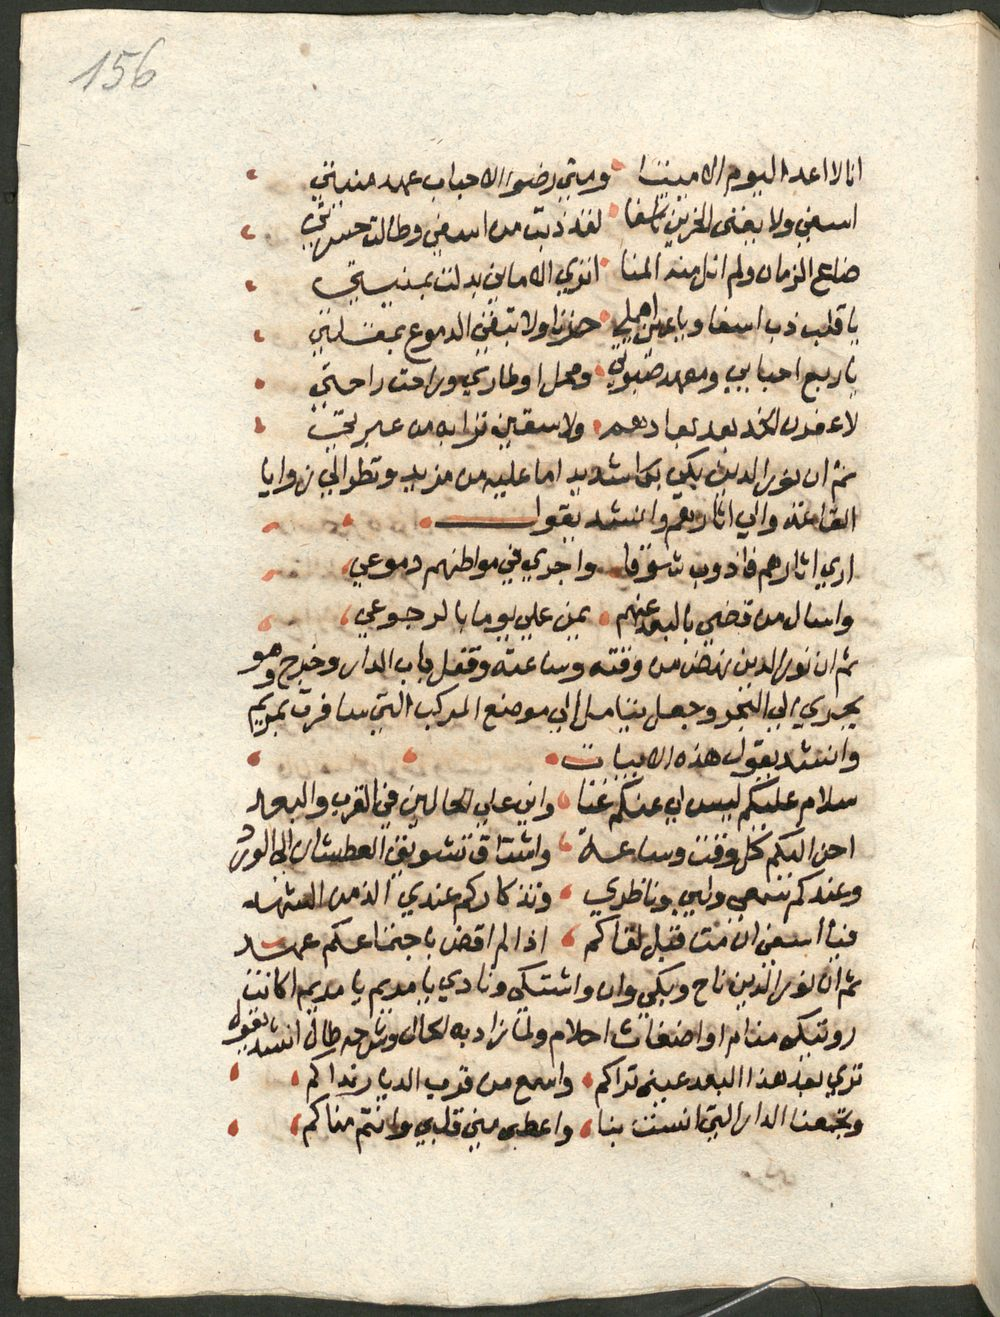 156
انا لا اعد اليوم الا ميتا ومتي رضوا الاحباب عهد منيتي
اسفي ولا يغني الحزين تاسفا لقد ذبت من اسفي وطالت حسرتي
ضاع الزمان ولم انل منه المنا اتري الاماني بدلت بمنيتي
يا قلب ذب اسفا ويا عين اهملي حزنا ولا تبقي الدموع بمقلتي
يا ربع احبابي ومعهد صبوتي ومحل اوطاري وراحت راحتي
لاعفرن الخد بعد بعادهم ولاسقين ترابه من عبرتي
ثم ان نور الدين بكي بكا شديد اما عليه من مزيد ونظر الي زوايا
القاعه والي اثارهم وانشد يقول
اري اثارهم فاذوب شوقا واجري في مواطنهم دموعي
واسال من قضي بالبعد عنهم يمن علي يوما بالرجوعي
ثم ان نور الدين نهض من وقته وساعته وقفل باب الدار وخرج وهو
يجري الي البحر وجعل يتامل الي موضع المركب التي سافرت بمريم
وانشد يقول هذه الابيات
سلام عليكم ليس لي عنكم غنا واني علي الحالين في القرب والبعد
احن اليكم كل وقت وساعة واشتاق تشويق العطشان الي الورد
وعندكم سمعي ولبي وناظري وتذكاركم عندي الذ من الشهد
فيا اسفي ان مت قبل لقاكم اذا لم اقض باجتماعكم عهد
ثم ان نور الدين ناح وبكي وان واشتكي ونادي يا مريم يا مريم اكانت
رويتك منام او اضغاث احلام ولما زاد به الحال انشد يقول
تري بعد هذا البعد عيني تراكم واسمع من قرب الديار نداكم
وتجمعنا الدار التي انست بنا واعطي مني قلبي وانتم مناكم